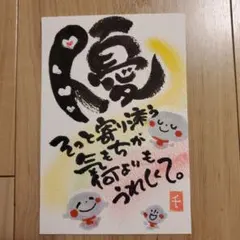 優
そっと寄り添う
気もちが
何よりも
うれしくて。
千